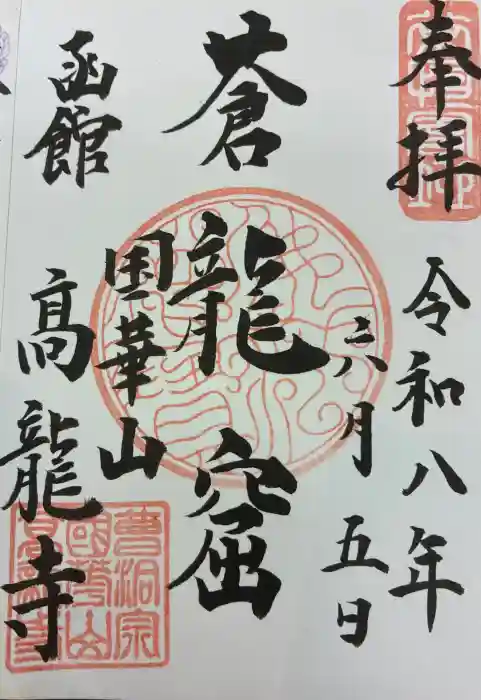 奉拝
令和八年
六月五日
蒼龍窟
国華山
函館
高龍寺
曹洞宗
国華山
高龍寺